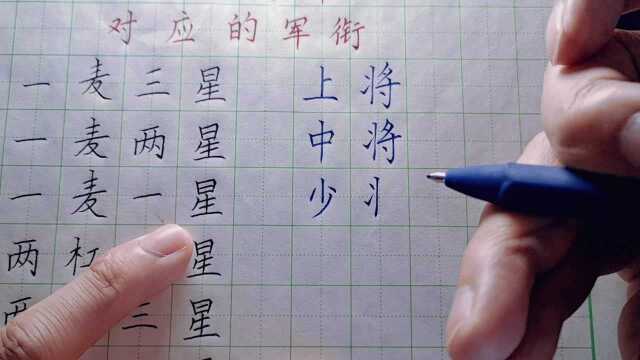 对应的军衔
一麦三星 上将
一麦两星 中将
一麦一星 少
两杠 星
三星